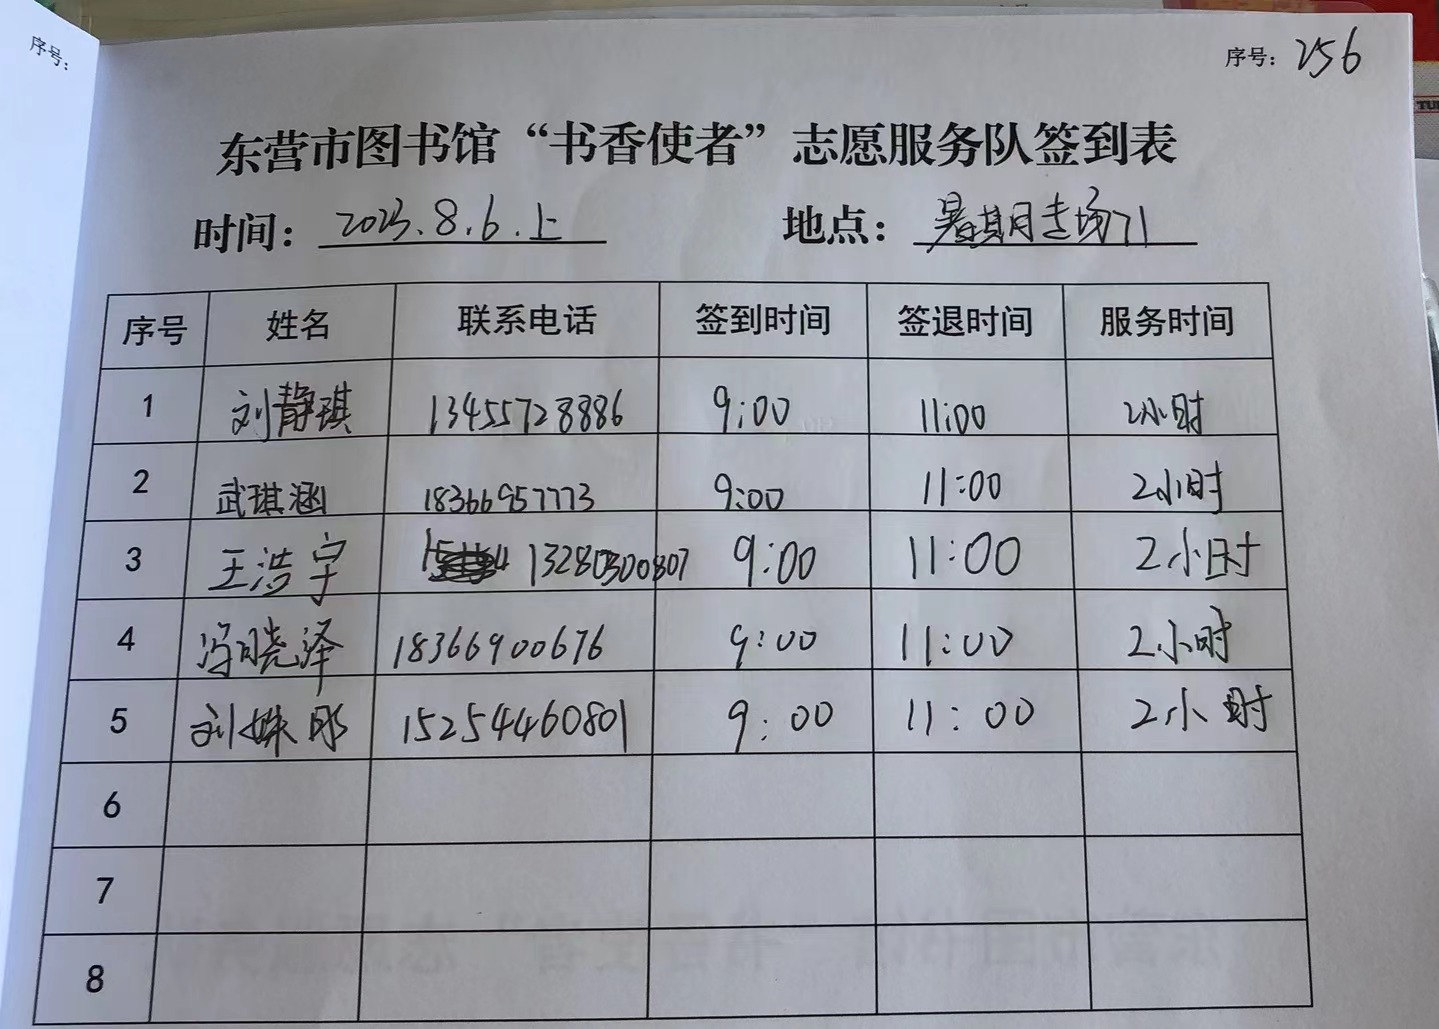 序号:
序号: 256
东营市图书馆“书香使者”志愿服务队签到表
时间: 2023.8.6.上 地点: 暑期专场71
序号 姓名 联系电话 签到时间 签退时间 服务时间
1 刘静琪 13455728886 9:00 11:00 2小时
2 武琪涵 18366957773 9:00 11:00 2小时
3 王浩宇 13280300807 9:00 11:00 2小时
4 冯晓泽 18366900676 9:00 11:00 2小时
5 刘姝彤 15254460801 9:00 11:00 2小时
6
7
8